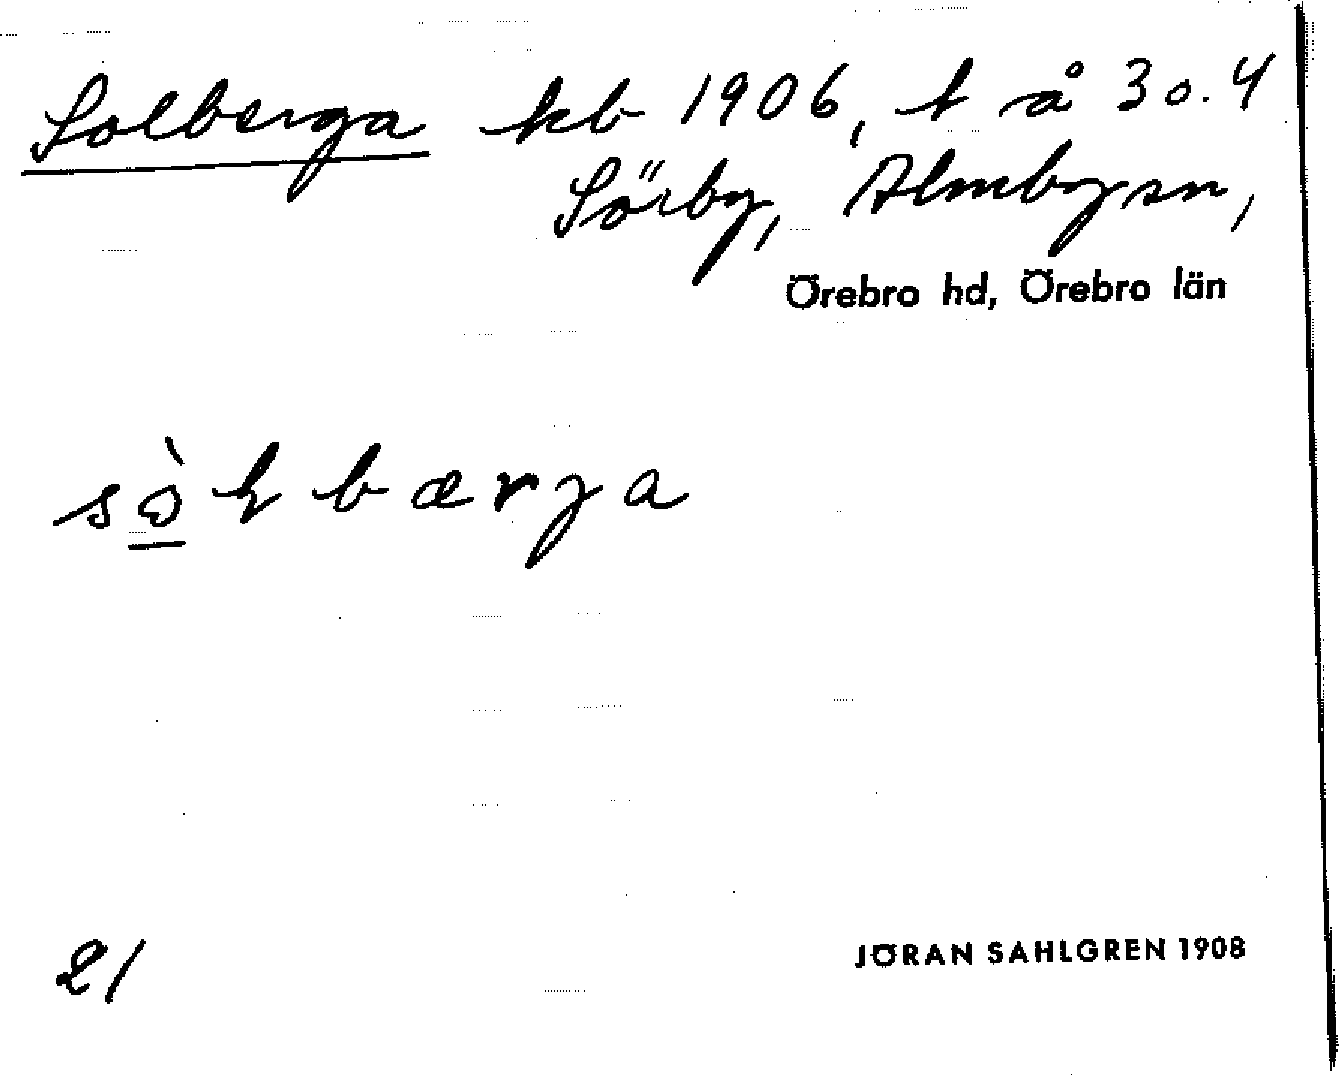 Solberga kb 1906, t å 3 o. 4
Sörby, Almbysn,
Örebro hd, Örebro län
sɷ̀ɽbærja
21
JÖRAN SAHLGREN 1908